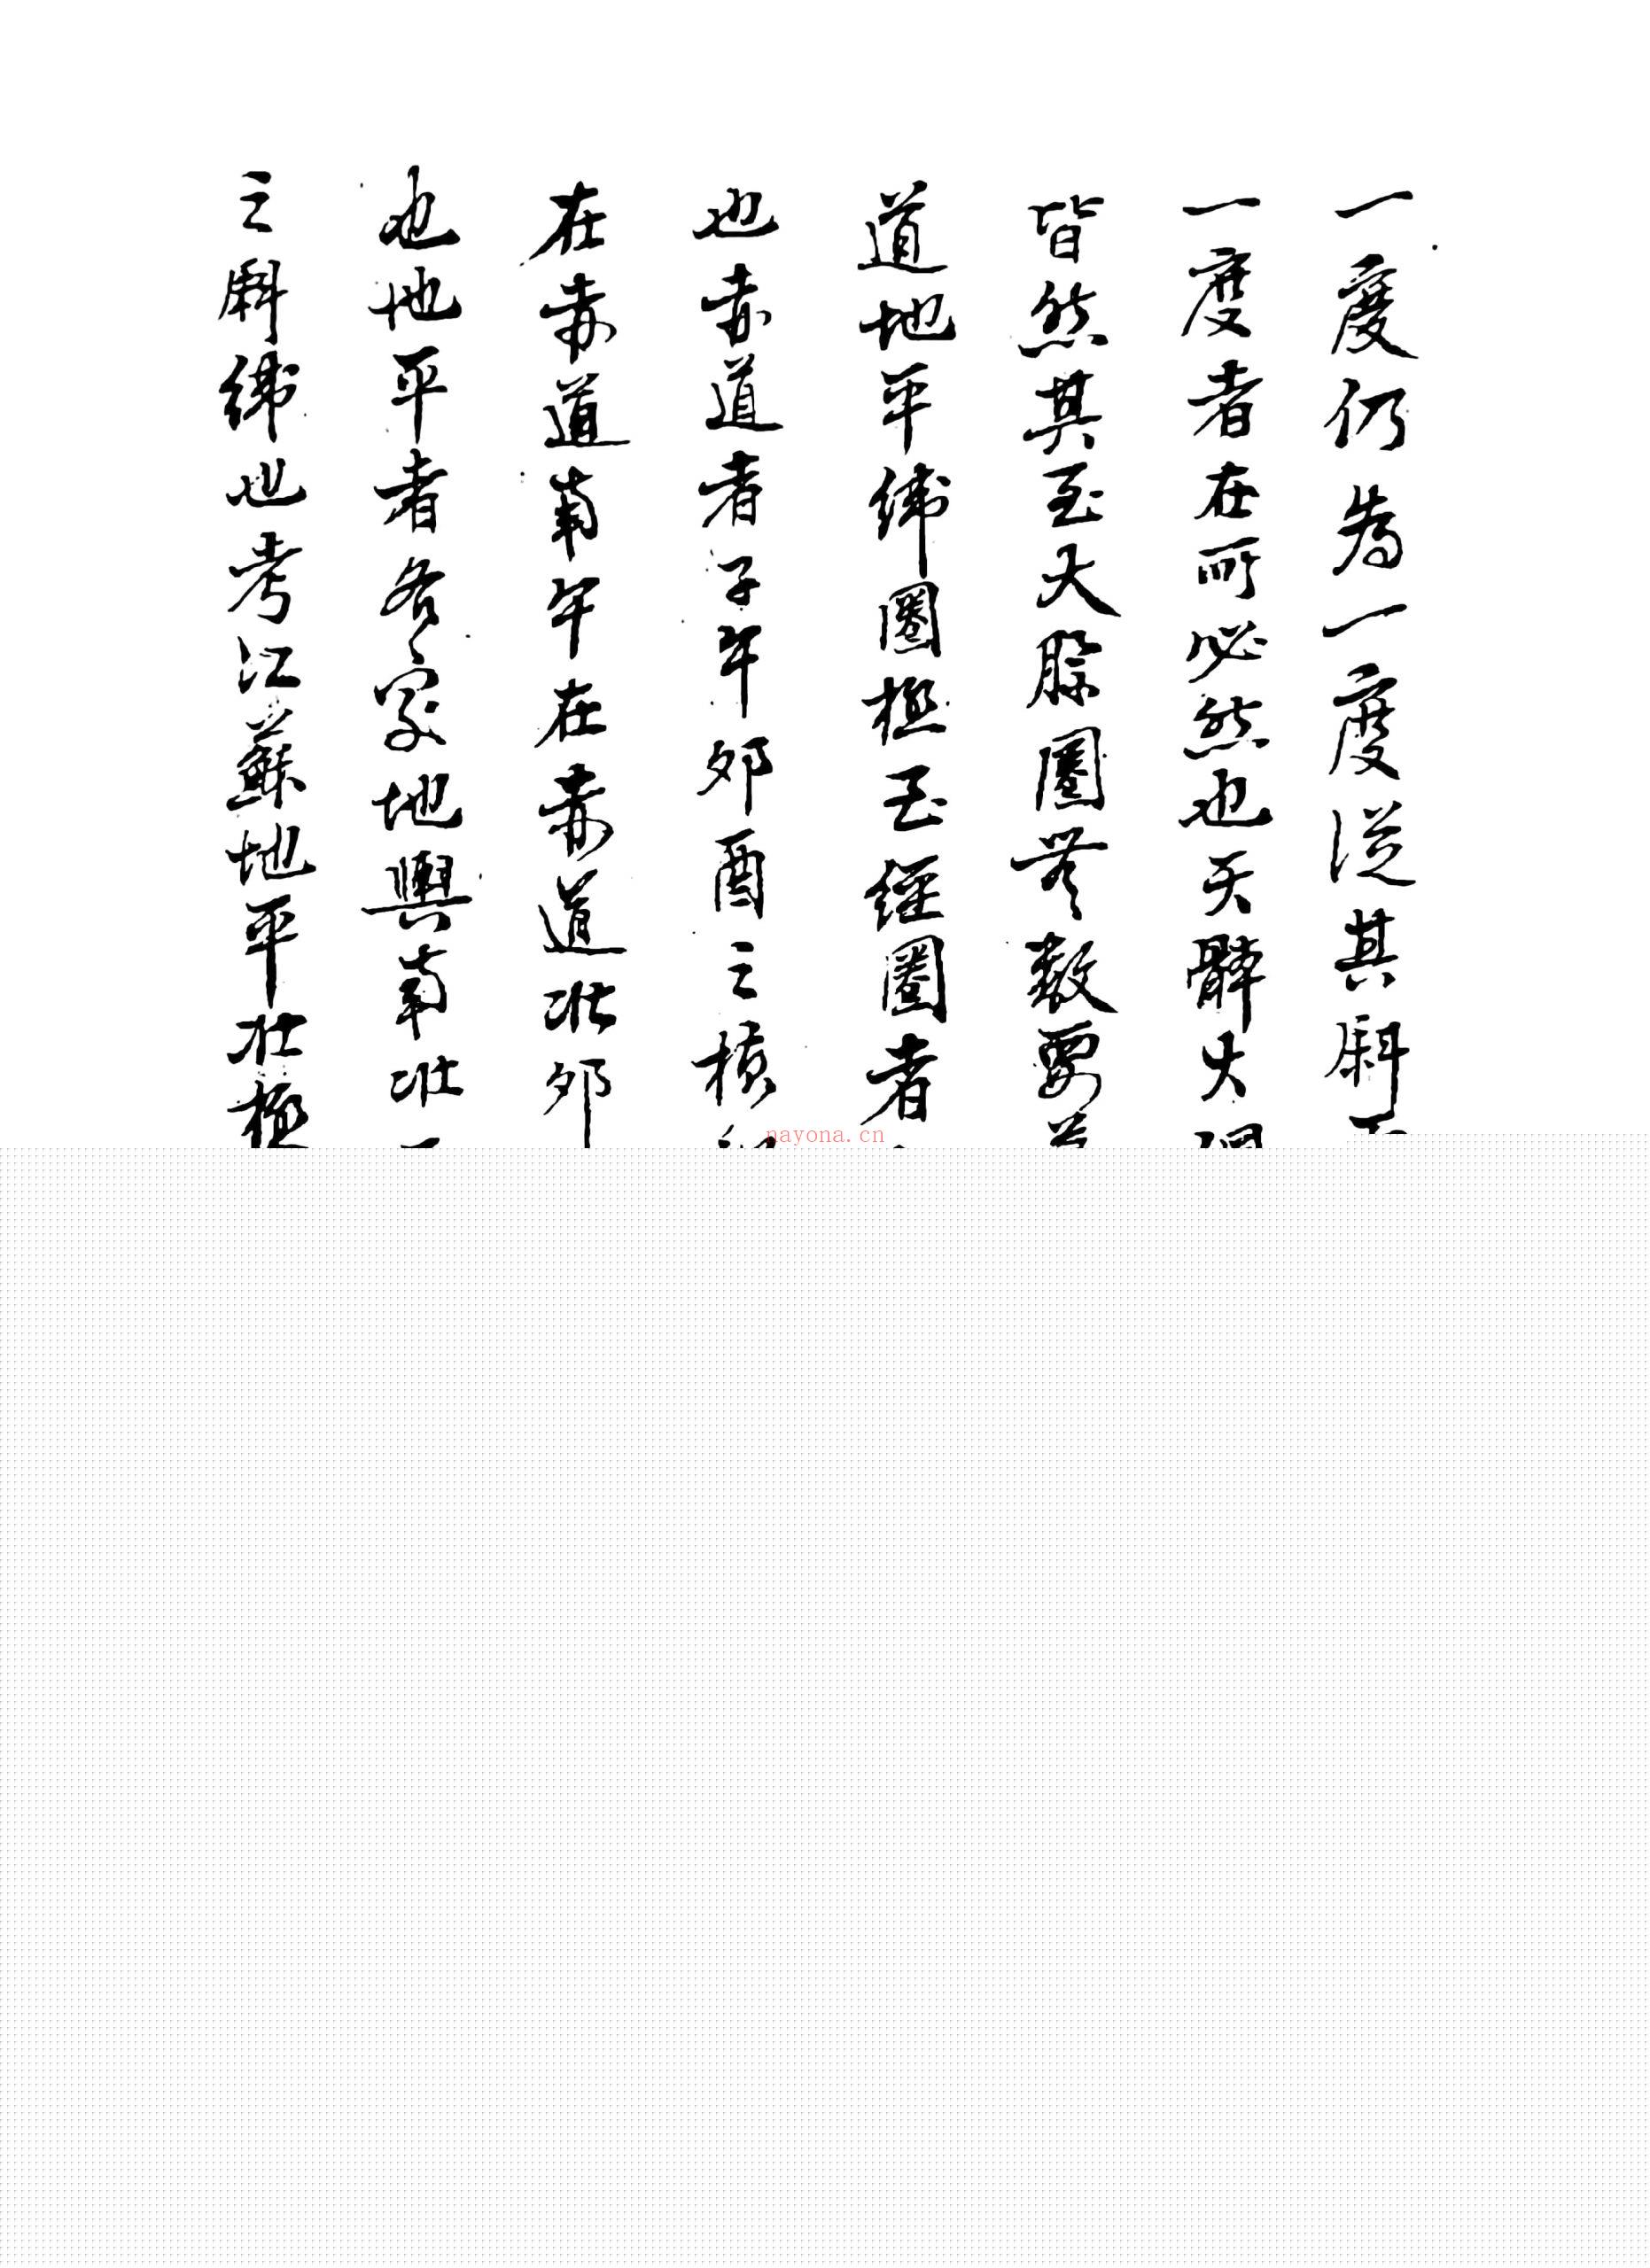 一度仍為一度從其斜
一度者在所必然也天體大
皆然其至大腙圈無數要
道地平緯圈極至經圈者
也赤道者子午卯酉之橫
在赤道南午在赤道北卯
也地平者各家地輿南北
之斜緯也考江蘇地平北極
nayona.cn